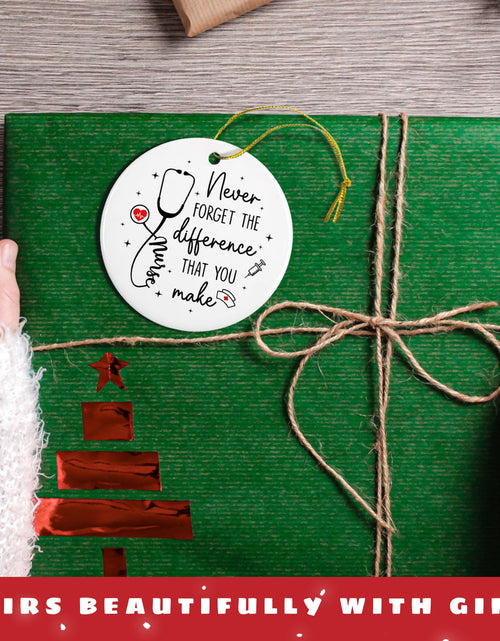 Never
FORGET THE
difference
THAT YOU
make
Nurse
BEAUTIFULLY WITH